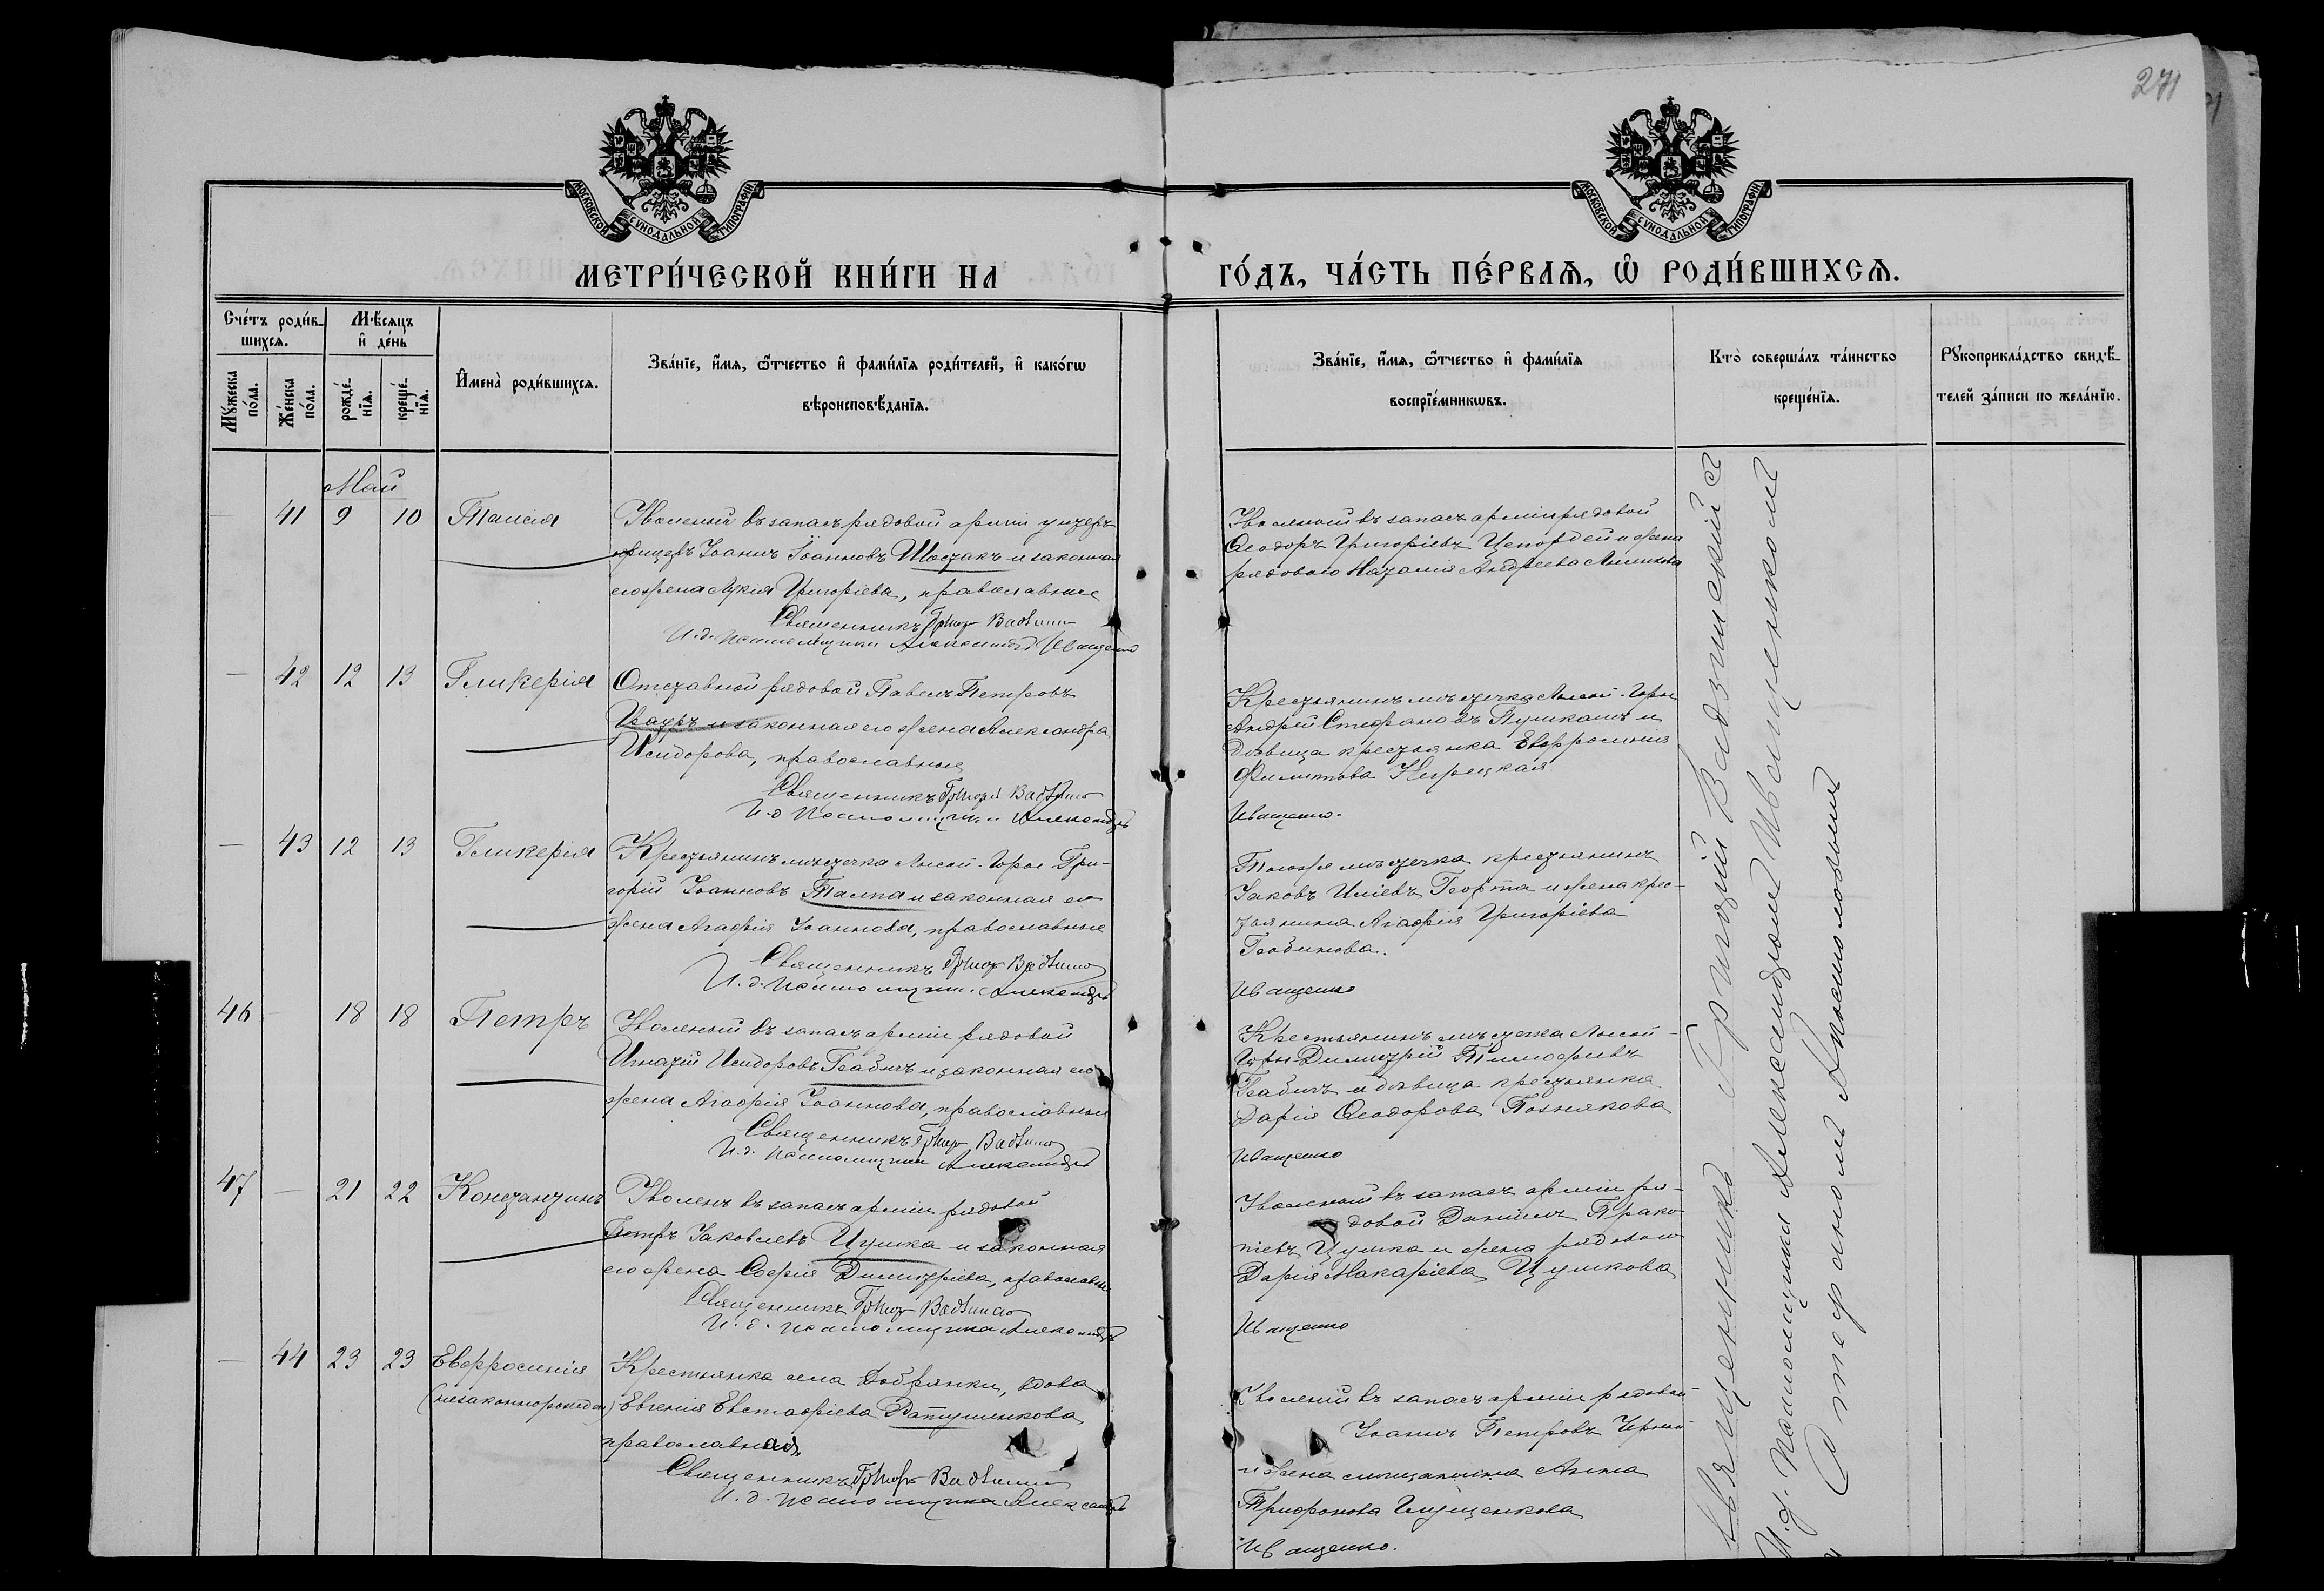 271
МОСКОВСКОЙ СУНОДАЛЬНОЙ ТИПОГРАФІИ
МОСКОВСКОЙ СУНОДАЛЬНОЙ ТИПОГРАФІИ
МЕТРИ́ЧЕСКОЙ КНИ́ГИ НА ГО́ДЪ, ЧА́СТЬ ПЕ́РВАѦ, Ѡ РОДИ́ВШИХСѦ.
Сче́тъ роди́в-
шихсѧ.
Мꙋжеска по́ла.
Же́нска по́ла.
Мѣ́сѧцъ и де́нь
рожде́нїѧ.
креще́нїѧ.
Имена̀ роди́вшихсѧ.
Зва́нїе, и́мѧ, ѻ́тчество и фами́лїѧ роди́телей, и како́гѡ
вѣроисповѣ́данїѧ.
Зва́нїе, и́мѧ, ѻ́тчество и фами́лїѧ
воспрїе́мникѡвъ.
Кто̀ соверша́лъ та́инство
креще́нїѧ.
Рꙋкоприкла́дство свидѣ́-
телей за́писи по жела́нїю.
Май
41 9 10 Таисія
Уволеный въ запасъ рядовой арміи унтеръ-
офицеръ Іоаннъ Іоанновъ Шостакъ и законная
его жена Лукія Григоріева, православные
Священникъ Григор Вадзин
И. д. псаломщика Александръ Иващенко
Уволеный въ запасъ арміи рядовой
Ѳеодоръ Григоріевъ и жена
рядового Андреева
— 42 12 13 Гликерія
Отставной рядовой Павелъ Петровъ
и законная его жена Александра
Исидорова, православные
Священникъ Григорій Вадзин
И. д. псаломщика Александръ
Крестьянинъ мѣстечка Лысой-Горы
Андрей Стефановъ Пушкашъ и
дѣвица крестьянка Евфросинія
Филиппова
Иващенко.
— 43 12 13 Гликерія
Крестьянинъ мѣстечка Лысой-Горы Гри-
горій Іоанновъ Талпа и законная его
жена Агафія Іоаннова, православные
Священникъ Григор Вадзин
И. д. псаломщика Александръ
Того же мѣстечка крестьянинъ
Іаковъ Иліевъ и жена крес-
тьянина Агафія Григоріева
Иващенко
46 — 18 18 Петръ
Уволеный въ запасъ арміи рядовой
Игнатій Исидоровъ и законная его
жена Агафія Іоаннова, православные
Священникъ Григор Вадзин
И. д. псаломщика Александръ
Крестьянинъ мѣстечка Лысой-
Горы Димитрій Тимофеевъ
и дѣвица крестьянка
Дарія Ѳеодорова Познякова
Иващенко
47 — 21 22 Константинъ
Уволенъ въ запасъ арміи рядовой
Петръ Іаковлевъ Цушка и законная
его жена Софія Димитріева, православные
Священникъ Григор Вадзин
И. д. псаломщика Александръ
Уволеный въ запасъ арміи ря-
довой Даніилъ Проко-
піевъ Цушка и жена рядового
Дарія Макаріева Цушкова
Иващенко
— 44 23 23 Евфросинія
(незаконнорожден)
Крестьянка села Добрянки, вдова
Евгенія Евстафіева Ратушенкова
православная
Священникъ Григор Вадзин
И. д. псаломщика Александръ
Уволеный въ запасъ арміи рядовой
Іоаннъ Петровъ Черный
и жена мѣщанина Анна
Трифонова
Иващенко.
Священникъ Григорій Вадзинскій с
И. д. псаломщика Александромъ Иващенкомъ
Стефаномъ